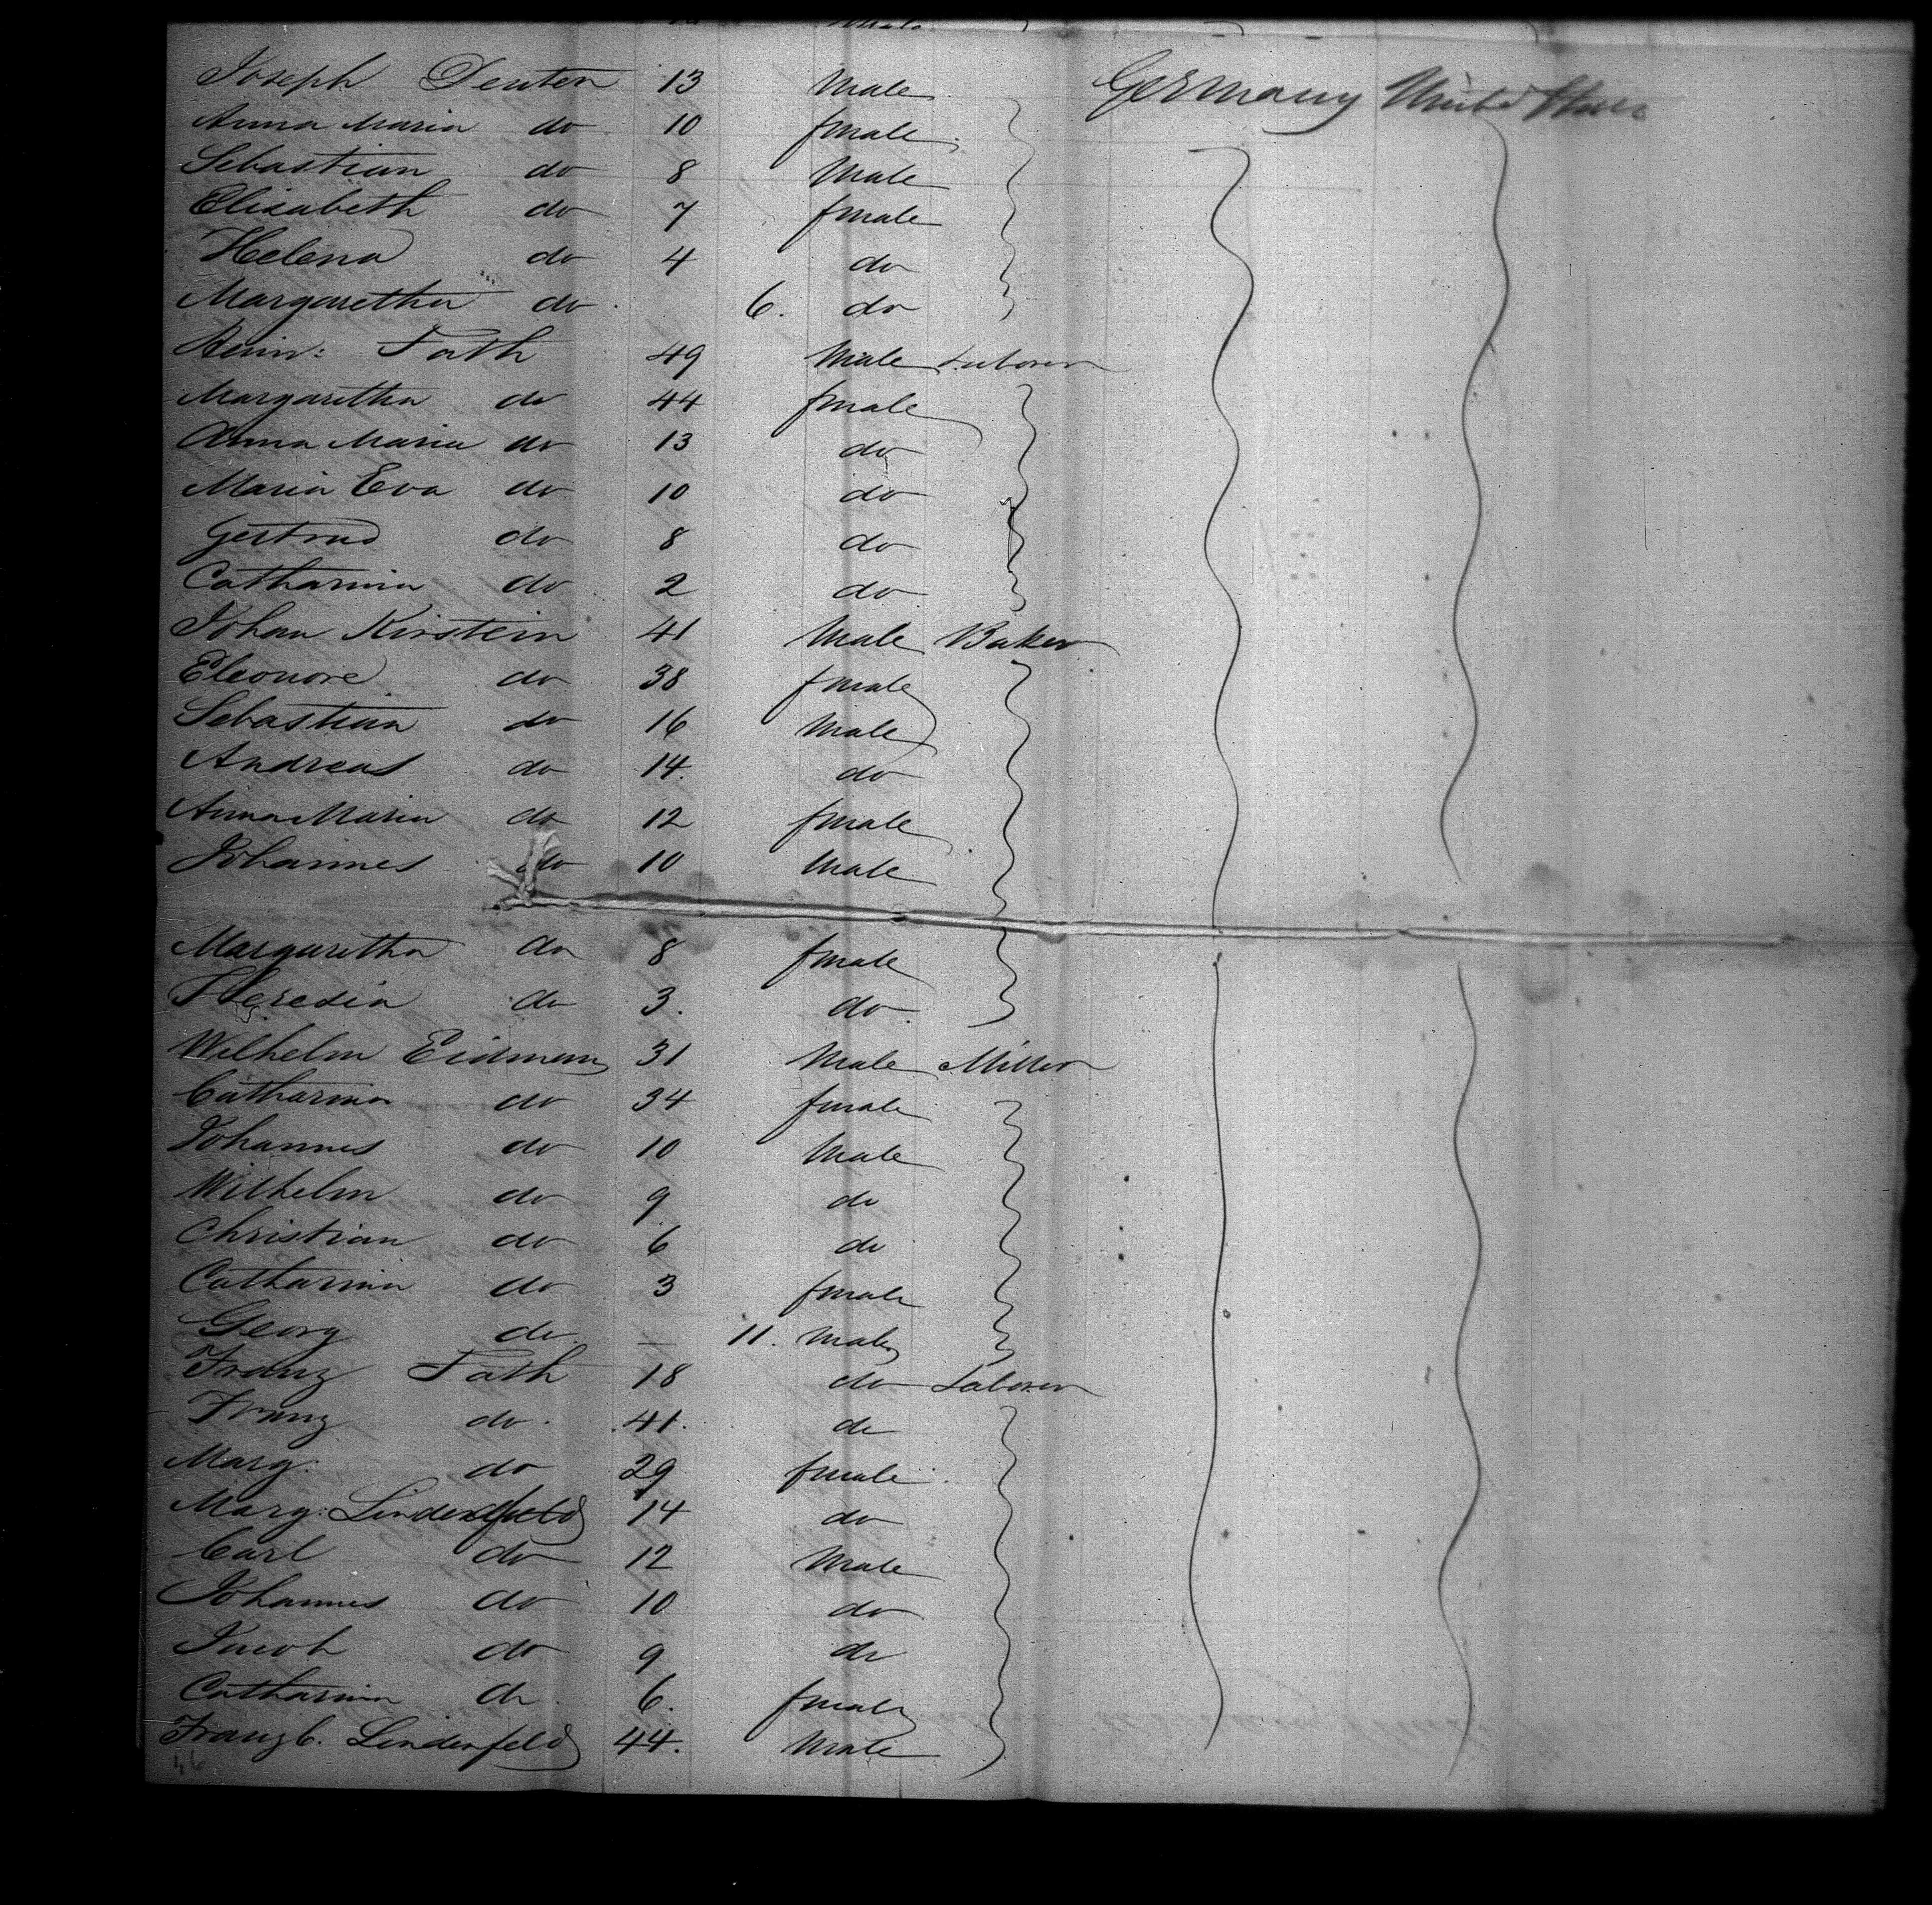 Joseph Deuter 13 Male Germany United States
Anna Maria do 10 female
Sebastian do 8 Male
Elisabeth do 7 female
Helena do 4 do
Margaretha do 6. do
Hein: Fath 49 Male Laborer
Margaretha do 44 female
Anna Maria do 13 do
Maria Eva do 10 do
Gertrud do 8 do
Catharina do 2 do
Johan Kirstein 41 Male Baker
Eleonore do 38 female
Sebastian do 16 Male
Andreas do 14. do
Anna Maria do 12 female
Johannes do 10 Male
Margaretha do 8 female
Theresia do 3. do
Wilhelm Eidmann 31 Male Miller
Catharina do 34 female
Johannes do 10 Male
Wilhelm do 9 do
Christian do 6 do
Catharina do 3 female
Georg do — 11. Male
Franz Fath 18 do Laborer
Franz do 41. do
Marg: do 29 female
Marg: Lindenfeld 14 do
Carl do 12 Male
Johannes do 10 do
Jacob do 9 do
Catharina do 6. female
Franz C. Lindenfeld 44. Male
46